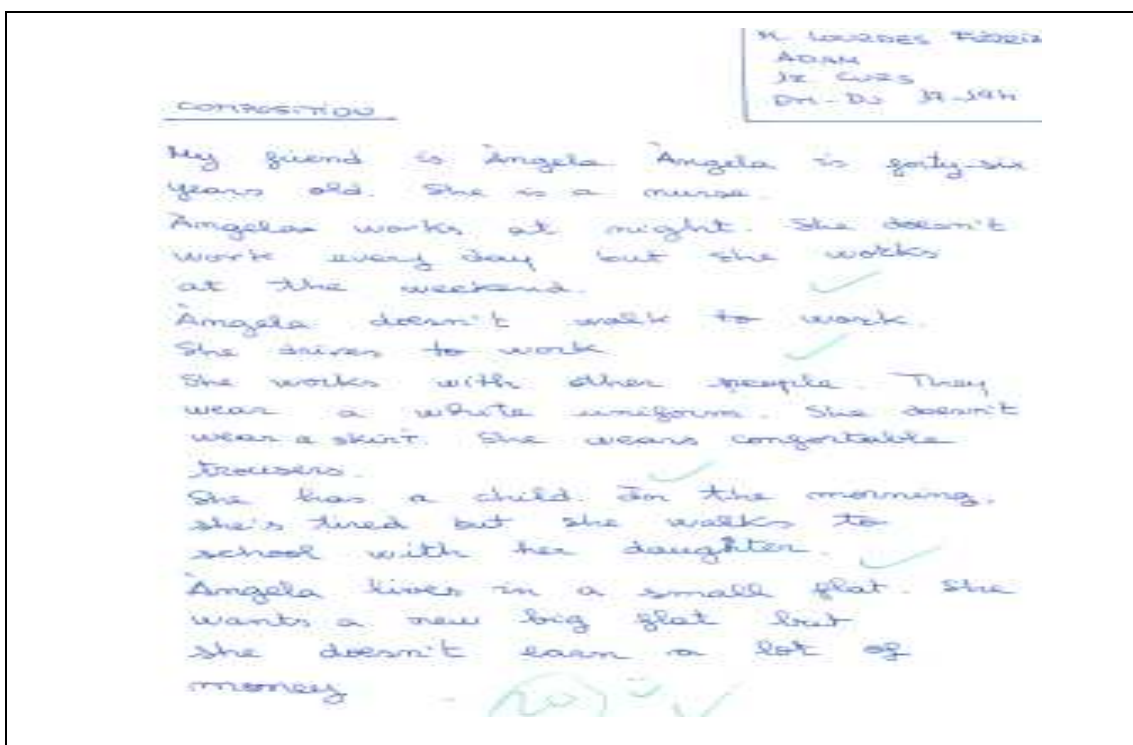 M. LOURDES
ADAM
COMPOSITION
My friend is Àngela Àngela is forty-six
years old. She is a nurse.
Àngela works at night. She doesn't
work every day but she works
at the weekend.
Àngela doesn't walk to work.
She drives to work
She works with other people. They
wear a white uniform. She doesn't
wear a skirt. She wears confortable
trousers.
She has a child. In the morning,
she's tired but she walks to
school with her daughter.
Àngela lives in a small flat. She
wants a new big flat but
she doesn't earn a lot of
money